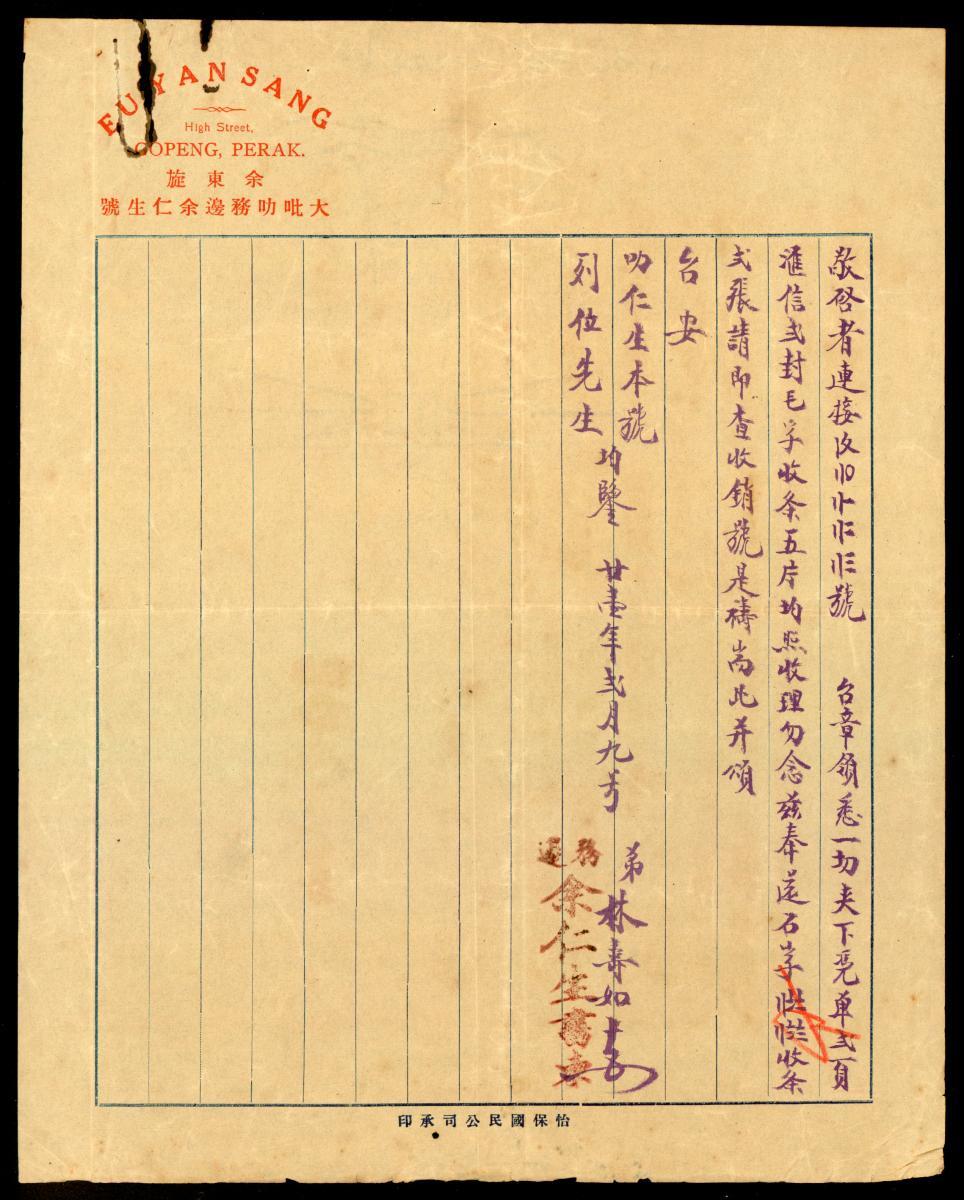 EU YAN SANG
High Street,
GOPENG, PERAK.
余東旋
大吡叻務邊余仁生號
敬啓者連接 號 台章領悉一切夾下凭单弍頁
滙信弍封毛字收条五片均照收理勿念兹奉返石字 收条
弍張請即查收銷號是禱耑此并頌
台安
叻仁生本號
列位先生
均鑒
廿壹年弍月九号
弟林壽如
務邊
余仁生書柬
怡保國民公司承印